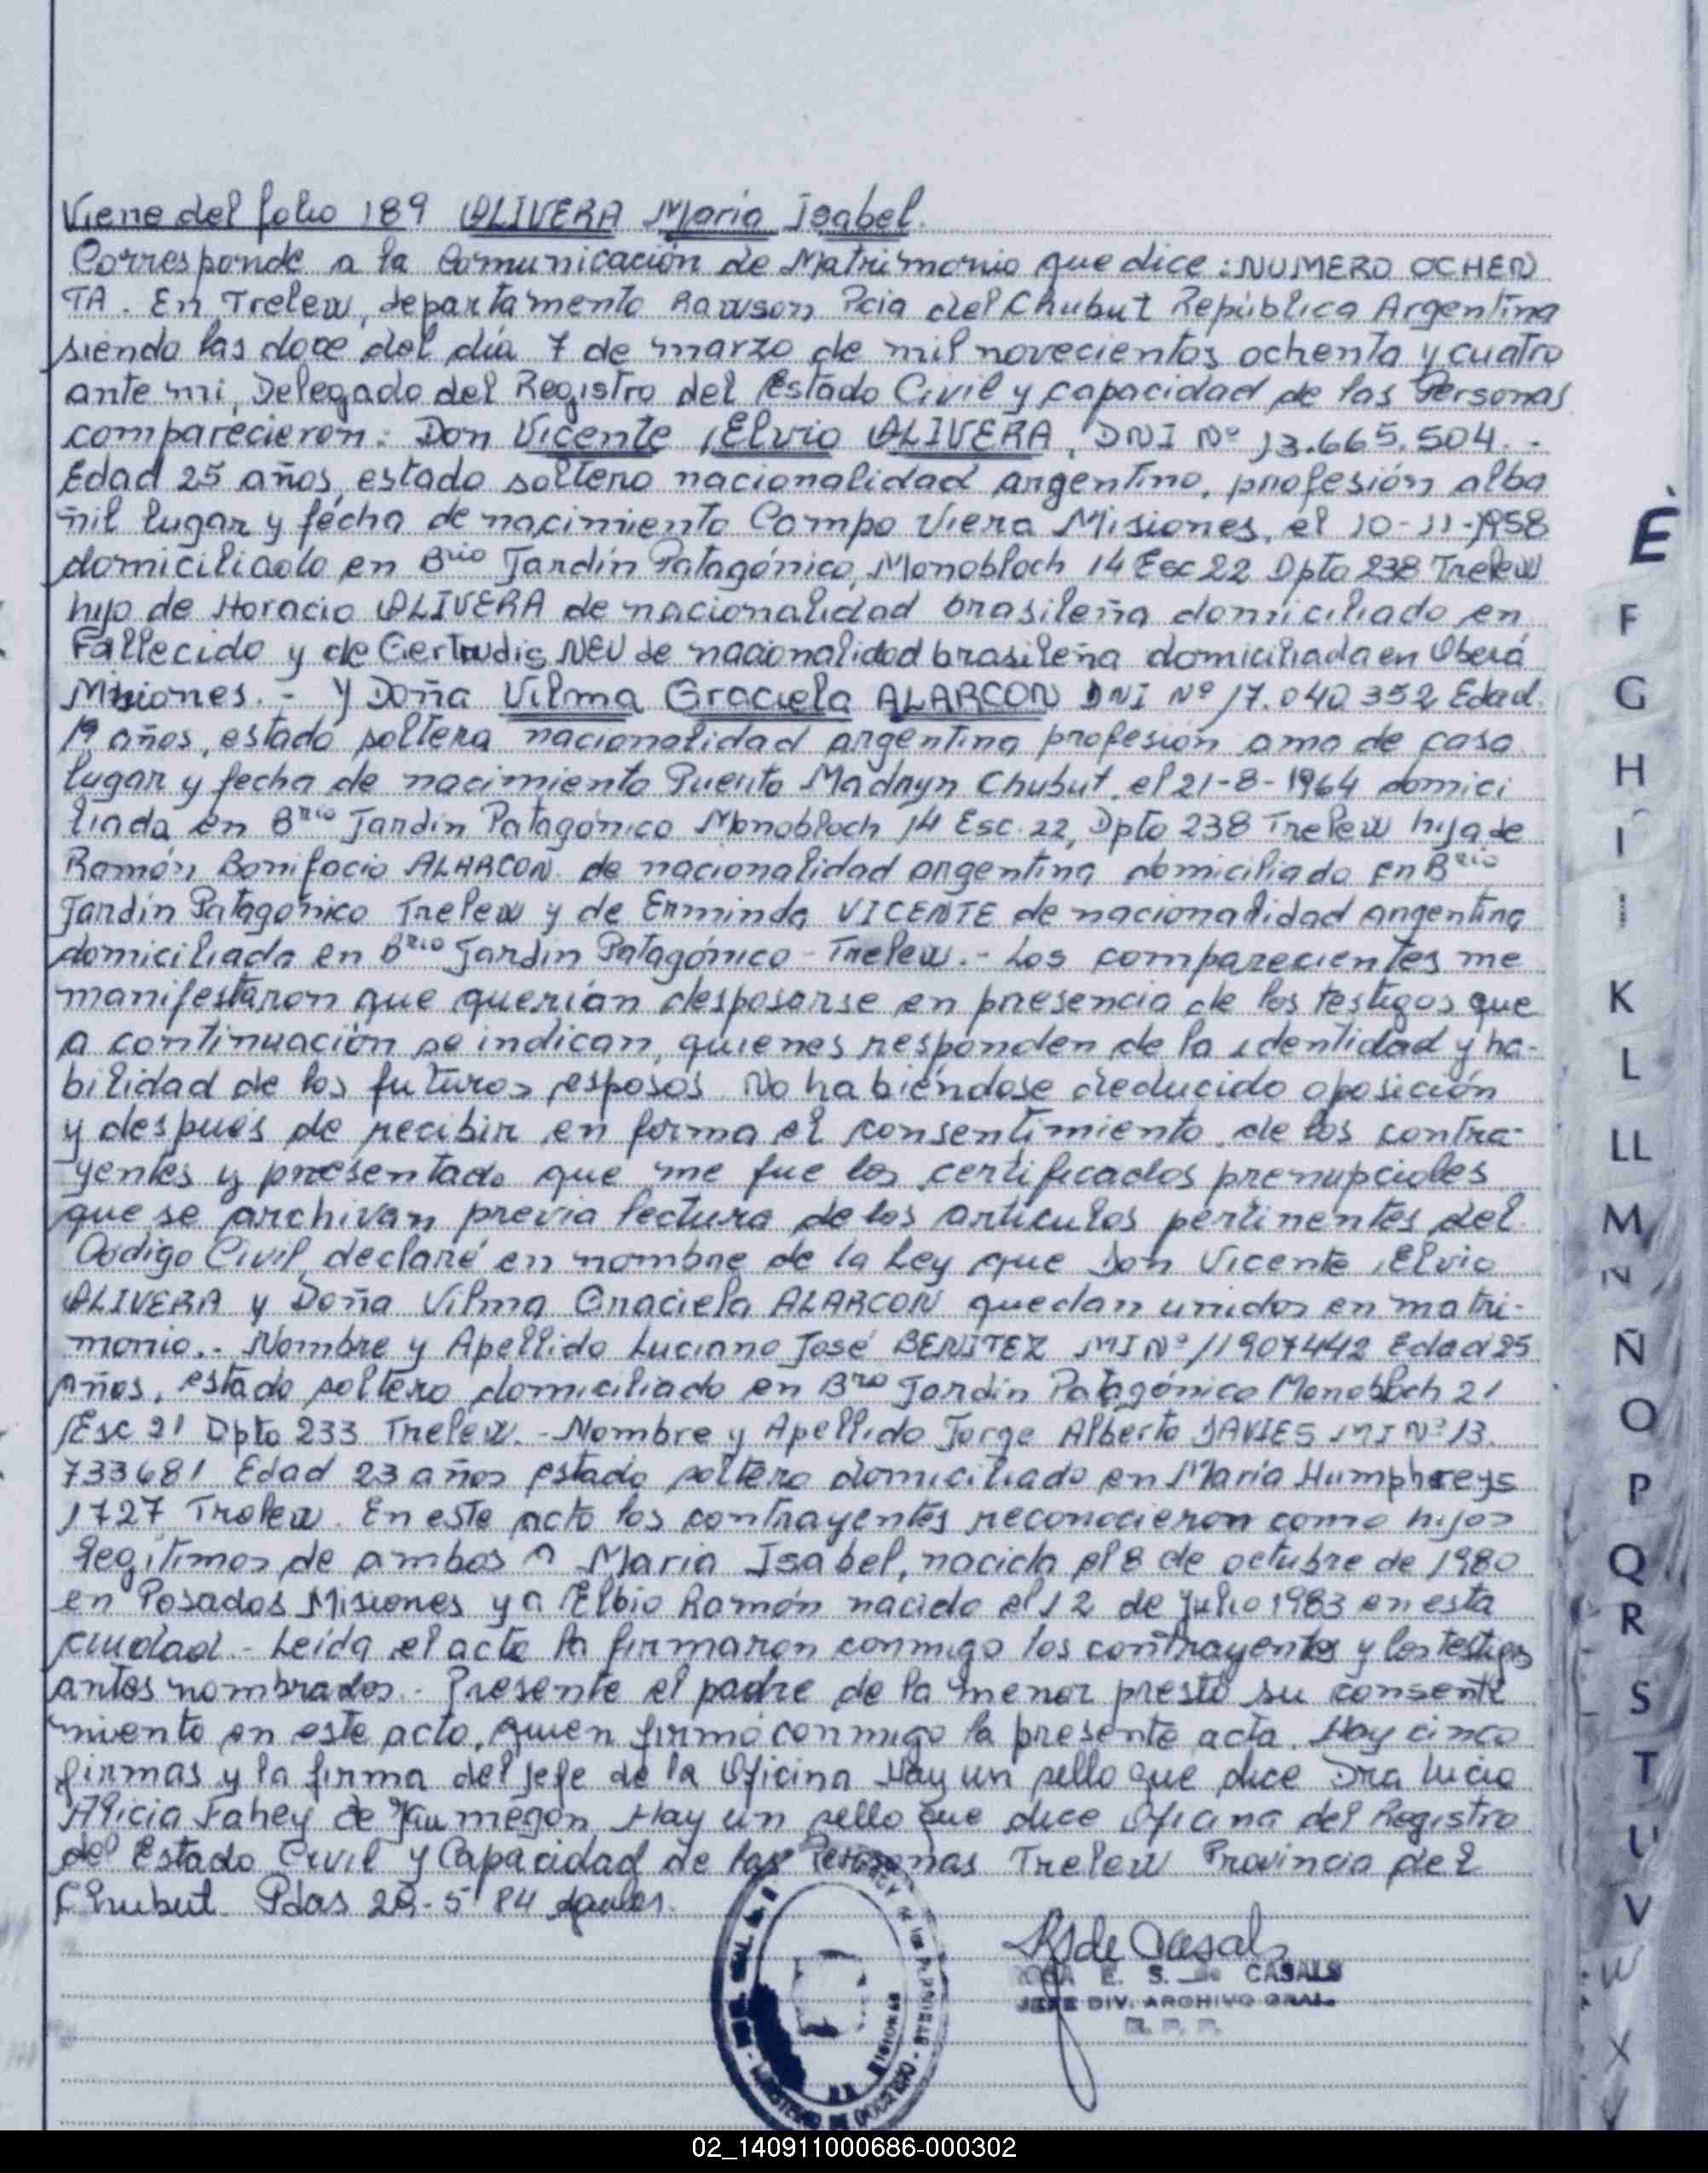 Viene del folio 189 OLIVERA María Isabel.
Corresponde a la Comunicación de Matrimonio que dice: NUMERO OCHEN
TA. En Trelew, departamento Rawson Pcia del Chubut República Argentina
siendo las doce del día 7 de marzo de mil novecientos ochenta y cuatro
ante mi, Delegado del Registro del Estado Civil y capacidad de las Personas
comparecieron: Don Vicente Elvio OLIVERA, DNI Nº 13.665.504.-
Edad 25 años, estado soltero nacionalidad argentino, profesión alba
ñil lugar y fecha de nacimiento Campo Viera Misiones, el 10-11-1958
domiciliado en Brio Jardín Patagónico, Monobloch 14 Esc 22 Dpto 238 Trelew
hijo de Horacio OLIVERA de nacionalidad brasileña domiciliado en
Fallecido y de Gertrudis NEU de nacionalidad brasileña domiciliada en Oberá
Misiones.- Y Doña Vilma Graciela ALARCON DNI Nº 17.040.352 Edad
19 años, estado soltera nacionalidad argentina profesión ama de casa
lugar y fecha de nacimiento Puerto Madryn Chubut, el 21-8-1964 domici
liada en Brio Jardín Patagónico Monobloch 14 Esc. 22, Dpto 238 Trelew hija de
Ramón Bonifacio ALARCON de nacionalidad argentina domiciliado en Brio
Jardín Patagónico Trelew y de Erminda VICENTE de nacionalidad argentina
domiciliada en Brio Jardín Patagónico - Trelew.- Los comparecientes me
manifestaron que querían desposarse en presencia de los testigos que
a continuación se indican, quienes responden de la identidad y ha-
bilidad de los futuros esposos. No habiéndose deducido oposición
y después de recibir en forma el consentimiento de los contra-
yentes y presentado que me fue los certificados prenupciales
que se archivan previa lectura de los artículos pertinentes del
Codigo Civil, declaré en nombre de la Ley que Don Vicente Elvio
OLIVERA y Doña Vilma Graciela ALARCON quedan unidos en matri-
monio.- Nombre y Apellido Luciano José BENITEZ MI Nº 11907442 Edad 25
años, estado soltero domiciliado en Bro Jardín Patagónico Monobloch 21
Esc 21 Dpto 233 Trelew.- Nombre y Apellido Jorge Alberto DAVIES MI Nº 13.
733681 Edad 23 años estado soltero domiciliado en María Humphreys
1727 Trelew. En este acto los contrayentes reconocieron como hijos
legítimos de ambos a Maria Isabel, nacida el 8 de octubre de 1980
en Posadas Misiones y a Elbio Ramón nacido el 12 de Julio 1983 en esta
ciudad.- Leída el acta la firmaron conmigo los contrayentes y los testigos
antes nombrados.- Presente el padre de la menor prestó su consenti
miento en este acto, quien firmó conmigo la presente acta. Hay cinco
firmas y la firma del Jefe de la Oficina Hay un sello que dice Dra Lucia
Alicia Fahey de Hay un sello que dice Oficina del Registro
del Estado Civil y Capacidad de las Personas Trelew Provincia del
Chubut. Pdas 29-5 84
E
F
G
H
I
K
L
LL
M
N
Ñ
O
P
Q
R
S
T
U
V
W
X
E. S. de CASALS
JEFE DIV. ARCHIVO GRAL.
R. P. P.
02_140911000686-000302